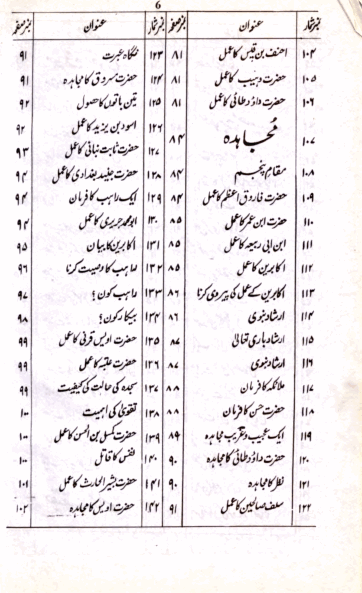 6
نمبر شمار عنوان نمبر صفحہ نمبر شمار عنوان نمبر صفحہ
۱۰۴ احنف بن قیس کا عمل ۸۱ ۱۲۳ نگاہ عبرت ۹۱
۱۰۵ حضرت وہیب کا عمل ۸۱ ۱۲۴ حضرت مسروق کا مجاہدہ ۹۱
۱۰۶ حضرت داؤد طائی کا عمل ۸۱ ۱۲۵ تین باتوں کا حصول ۹۲
۱۰۷ مُجاہدہ ۸۴ ۱۲۶ اسود بن یزید کا عمل ۹۲
۱۲۷ حضرت ثابت بنانی کا عمل ۹۳
۱۰۸ مقام پنجم ۸۴ ۱۲۸ حضرت جنید بغدادی کا عمل ۹۴
۱۰۹ حضرت فاروق اعظم کا عمل ۸۴ ۱۲۹ ایک راہب کا فرمان ۹۴
۱۱۰ حضرت ابن عمر کا عمل ۸۵ ۱۳۰ ابو محمد جریری کا عمل ۹۴
۱۱۱ ابن ابی ربیعہ کا عمل ۸۵ ۱۳۱ اکابرین کا بیان ۹۵
۱۱۲ اکابرین کا عمل ۸۵ ۱۳۲ راہب کا وصیت کرنا ۹۶
۱۱۳ اکابرین کے عمل کی پیروی کرنا ۸۶ ۱۳۳ راہب کون؟ ۹۷
۱۱۴ ارشاد نبوی ۸۶ ۱۳۴ بیکار کون؟ ۹۸
۱۱۵ ارشاد باری تعالیٰ ۸۷ ۱۳۵ حضرت اویس قرنی کا عمل ۹۹
۱۱۶ ارشاد نبوی ۸۷ ۱۳۶ حضرت عتبہ کا عمل ۹۹
۱۱۷ ملائکہ کا فرمان ۸۸ ۱۳۷ سجدہ کی حالت کی کیفیت ۹۹
۱۱۸ حضرت حسن کا فرمان ۸۸ ۱۳۸ تقویٰ کی اہمیت ۱۰۰
۱۱۹ ایک عجیب و غریب مجاہدہ ۸۹ ۱۳۹ حضرت کہمس بن الحسن کا عمل ۱۰۰
۱۲۰ حضرت داؤد طائی کا مجاہدہ ۹۰ ۱۴۰ نفس کا قاتل ۱۰۰
۱۲۱ نظر کا مجاہدہ ۹۰ ۱۴۱ حضرت بشیر الحارث کا عمل ۱۰۱
۱۲۲ سلف صالحین کا عمل ۹۱ ۱۴۲ حضرت اویس کا مجاہدہ ۱۰۲